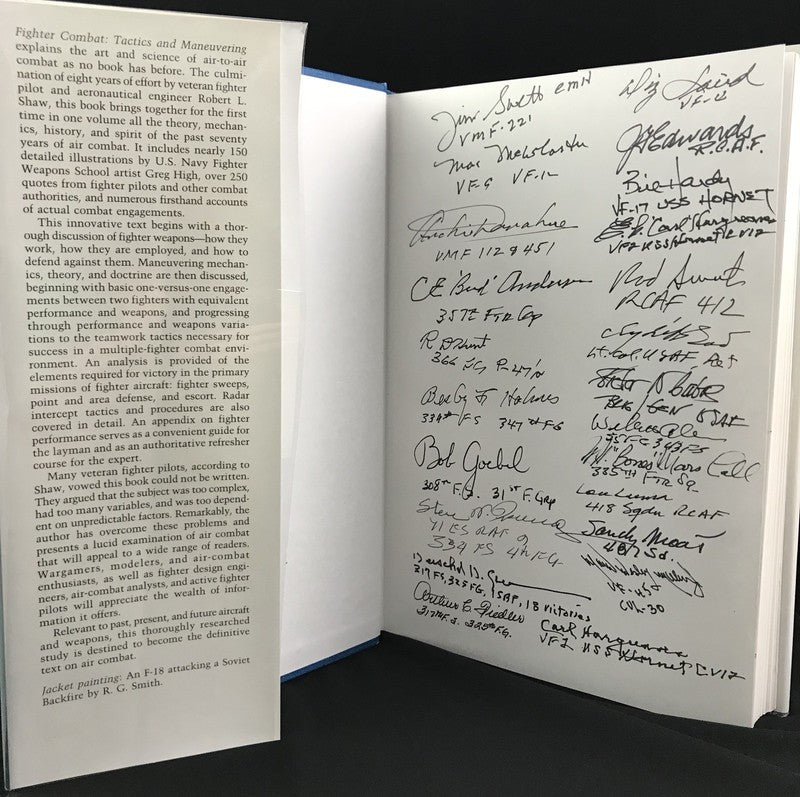 Fighter Combat: Tactics and Maneuvering
explains the art and science of air-to-air
combat as no book has before. The culmi-
nation of eight years of effort by veteran fighter
pilot and aeronautical engineer Robert L.
Shaw, this book brings together for the first
time in one volume all the theory, mechan-
ics, history, and spirit of the past seventy
years of air combat. It includes nearly 150
detailed illustrations by U.S. Navy Fighter
Weapons School artist Greg High, over 250
quotes from fighter pilots and other combat
authorities, and numerous firsthand accounts
of actual combat engagements.
This innovative text begins with a thor-
ough discussion of fighter weapons—how they
work, how they are employed, and how to
defend against them. Maneuvering mechan-
ics, theory, and doctrine are then discussed,
beginning with basic one-versus-one engage-
ments between two fighters with equivalent
performance and weapons, and progressing
through performance and weapons varia-
tions to the teamwork tactics necessary for
success in a multiple-fighter combat envi-
ronment. An analysis is provided of the
elements required for victory in the primary
missions of fighter aircraft: fighter sweeps,
point and area defense, and escort. Radar
intercept tactics and procedures are also
covered in detail. An appendix on fighter
performance serves as a convenient guide for
the layman and as an authoritative refresher
course for the expert.
Many veteran fighter pilots, according to
Shaw, vowed this book could not be written.
They argued that the subject was too complex,
had too many variables, and was too depend-
ent on unpredictable factors. Remarkably, the
author has overcome these problems and
presents a lucid examination of air combat
that will appeal to a wide range of readers.
Wargamers, modelers, and air-combat
enthusiasts, as well as fighter design engi-
neers, air-combat analysts, and active fighter
pilots will appreciate the wealth of infor-
mation it offers.
Relevant to past, present, and future aircraft
and weapons, this thoroughly researched
study is destined to become the definitive
text on air combat.
Jacket painting: An F-18 attacking a Soviet
Backfire by R. G. Smith.
Jim Swett CMH
VMF-221
VF-9 VF-12
Archie Donahue
VMF 112 & 451
CE "Bud" Anderson
357th FTR Grp
R D Hunt
Besby F Holmes
339th FS 347th FG
Bob Goebel
308th F.S. 31st F. Grp
71 ES RAF
334 FS 4th FG
Herschel D. Green
317 FS, 325 FG, 15AF, 18 victories
Arthur E. Fiedler
317th F.S. 325th F.G.
Diz Laird
VF-4
JF Edwards
R.C.A.F.
Bill Hardy
VF-17 USS HORNET
"Carl" Hargreaves
VF2 USS Hornet CV12
Rod Smith
RCAF 412
Lt. Col. USAF Ret
BRIG GEN USAF
35 FG 343 FS
W. "Bones" Marshall
385th FTR Sq.
418 Sqdn RCAF
Sandy
VF-45
CVL-30
Carl Hargreaves
VF2 USS Hornet CV12